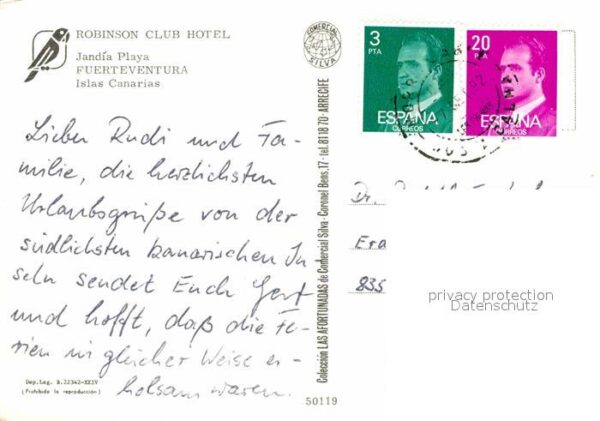 ROBINSON CLUB HOTEL
Jandía Playa
FUERTEVENTURA
Islas Canarias
Lieber Rudi und Fa-
milie, die herzlichsten
Urlaubsgrüße von der
südlichsten kanarischen In
seln sendet Euch Gert
und hofft, daß die Fe-
rien in gleicher Weise er-
holsam waren.
Dep.Leg. B.22342-XXIV
(Prohibida la reproducción)
COMERCIAL
SILVA
Colección LAS AFORTUNADAS de Comercial Silva - Coronel Bens, 17 - tel. 81 18 70 - ARRECIFE
50119
3
PTA
ESPAÑA
CORREOS
20
PTA
ESPAÑA
CORREOS
Dr.
Era
835
privacy protection
Datenschutz